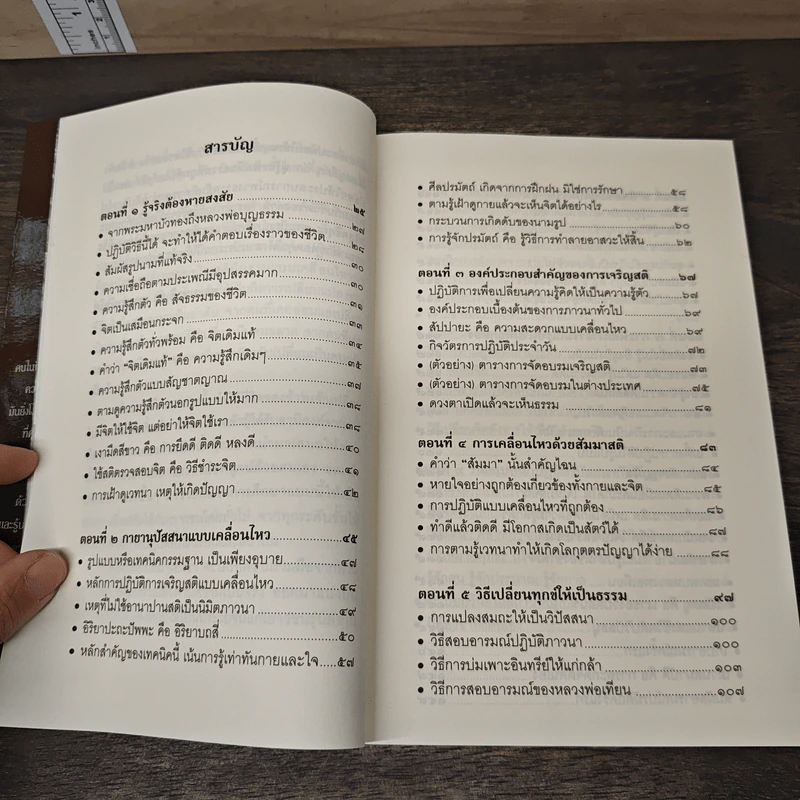 สารบัญ
ตอนที่ ๑ รู้จริงต้องหายสงสัย ๒๕
• จากพระมหาบัวทองถึงหลวงพ่อบุญธรรม ๒๗
• ปฏิบัติวิธีนี้ได้ จะทำให้ได้คำตอบเรื่องราวของชีวิต ๒๘
• สัมผัสรูปนามที่แท้จริง ๓๐
• ความเชื่อถือตามประเพณีมีอุปสรรคมาก ๓๐
• ความรู้สึกตัว คือ สัจธรรมของชีวิต ๓๑
• จิตเป็นเสมือนกระจก ๓๓
• ความรู้สึกตัวทั่วพร้อม คือ จิตเดิมแท้ ๓๔
• คำว่า “จิตเดิมแท้” คือ ความรู้สึกเดิมๆ ๓๕
• ความรู้สึกตัวแบบสัญชาตญาณ ๓๗
• ตามดูความรู้สึกตัวนอกรูปแบบให้มาก ๓๘
• มีจิตให้ใช้จิต แต่อย่าให้จิตใช้เรา ๓๘
• เงามืดสีขาว คือ การยึดดี ติดดี หลงดี ๔๐
• ใช้สติตรวจสอบจิต คือ วิธีชำระจิต ๔๑
• การเฝ้าดูเวทนา เหตุให้เกิดปัญญา ๔๒
ตอนที่ ๒ กายานุปัสสนาแบบเคลื่อนไหว ๔๕
• รูปแบบหรือเทคนิคกรรมฐาน เป็นเพียงอุบาย ๔๗
• หลักการปฏิบัติการเจริญสติแบบเคลื่อนไหว ๔๘
• เหตุที่ไม่ใช้อานาปานสติเป็นนิมิตภาวนา ๔๙
• อิริยาปะถะปัพพะ คือ อิริยาบถสี่ ๕๐
• หลักสำคัญของเทคนิคนี้ เน้นการรู้เท่าทันกายและใจ ๕๗
• ศีลปรมัตถ์ เกิดจากการฝึกฝน มิใช่การรักษา ๕๘
• ตามรู้เฝ้าดูกายแล้วจะเห็นจิตได้อย่างไร ๕๘
• กระบวนการเกิดดับของนามรูป ๖๐
• การรู้จักปรมัตถ์ คือ รู้วิธีการทำลายอาสวะให้สิ้น ๖๒
ตอนที่ ๓ องค์ประกอบสำคัญของการเจริญสติ ๖๗
• ปฏิบัติการเพื่อเปลี่ยนความรู้คิดให้เป็นความรู้ตัว ๖๗
• องค์ประกอบเบื้องต้นของการภาวนาทั่วไป ๖๙
• สัปปายะ คือ ความสะดวกแบบเคลื่อนไหว ๖๙
• กิจวัตรการปฏิบัติประจำวัน ๗๒
• (ตัวอย่าง) ตารางการจัดอบรมเจริญสติ ๗๓
• (ตัวอย่าง) ตารางการจัดอบรมในต่างประเทศ ๗๕
• ดวงตาเปิดแล้วจะเห็นธรรม ๘๑
ตอนที่ ๔ การเคลื่อนไหวด้วยสัมมาสติ ๘๓
• คำว่า “สัมมา” นั้นสำคัญไฉน ๘๔
• หายใจอย่างถูกต้องเกี่ยวข้องทั้งกายและจิต ๘๕
• การปฏิบัติแบบเคลื่อนไหวที่ถูกต้อง ๘๖
• ทำดีแล้วติดดี มีโอกาสเกิดเป็นสัตว์ได้ ๘๗
• การตามรู้เวทนาทำให้เกิดโลกุตตรปัญญาได้ง่าย ๘๘
ตอนที่ ๕ วิธีเปลี่ยนทุกข์ให้เป็นธรรม ๙๗
• การแปลงสมถะให้เป็นวิปัสสนา ๑๐๐
• วิธีสอบอารมณ์ปฏิบัติภาวนา ๑๐๐
• วิธีการบ่มเพาะอินทรีย์ให้แก่กล้า ๑๐๓
• วิธีการสอบอารมณ์ของหลวงพ่อเทียน ๑๐๗